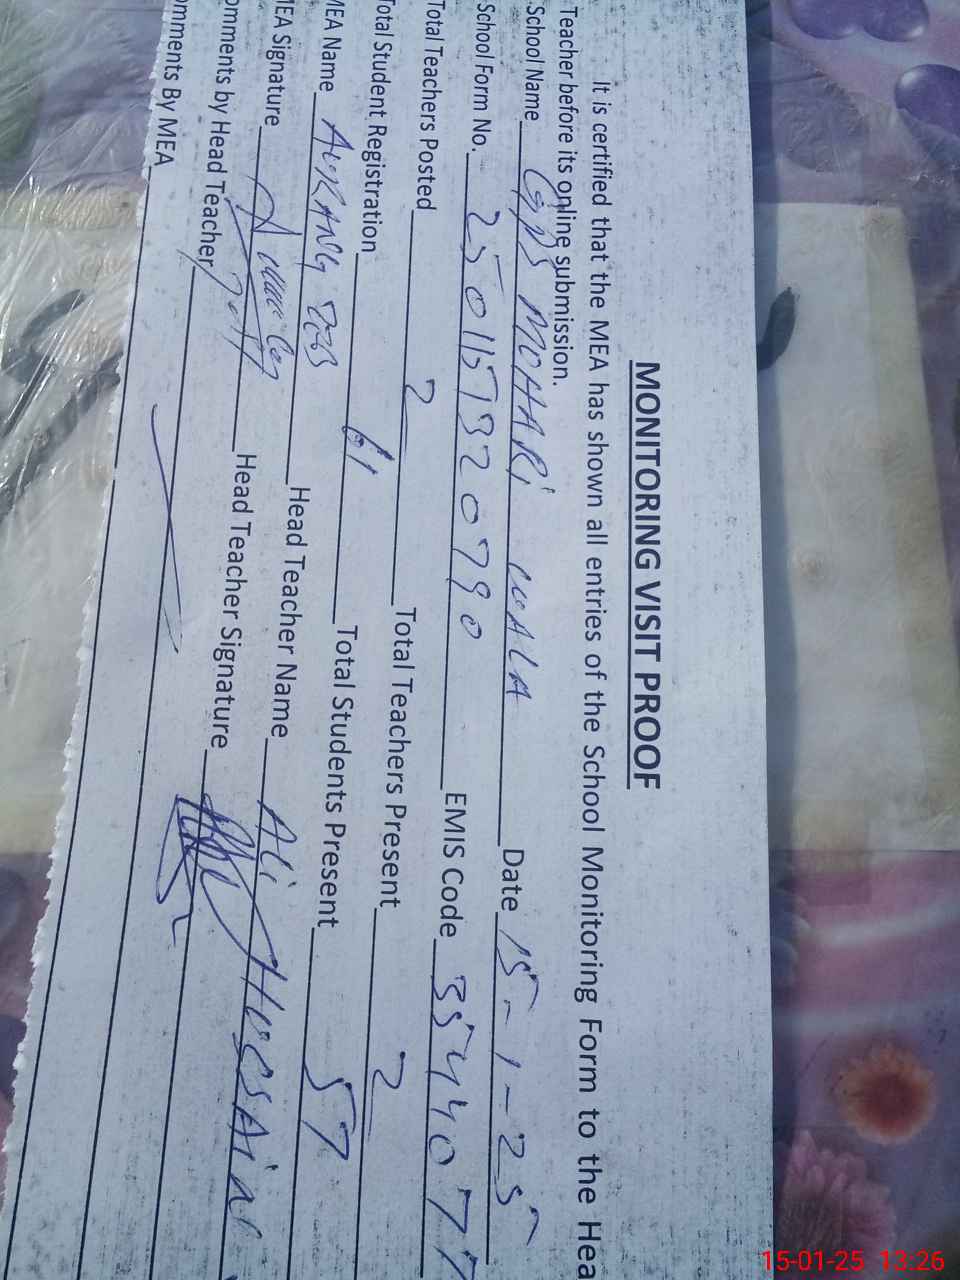 MONITORING VISIT PROOF
It is certified that the MEA has shown all entries of the School Monitoring Form to the Hea
Teacher before its online submission.
School Name GPS MOHARI WALA Date 15-1-25
School Form No. 25011573 20790 EMIS Code 3544077
Total Teachers Posted 2 Total Teachers Present 2
Total Student Registration 61 Total Students Present 57
MEA Name AURANG ZEB Head Teacher Name Ali Hussain
MEA Signature Head Teacher Signature
omments by Head Teacher
omments By MEA
15-01-25 13:26